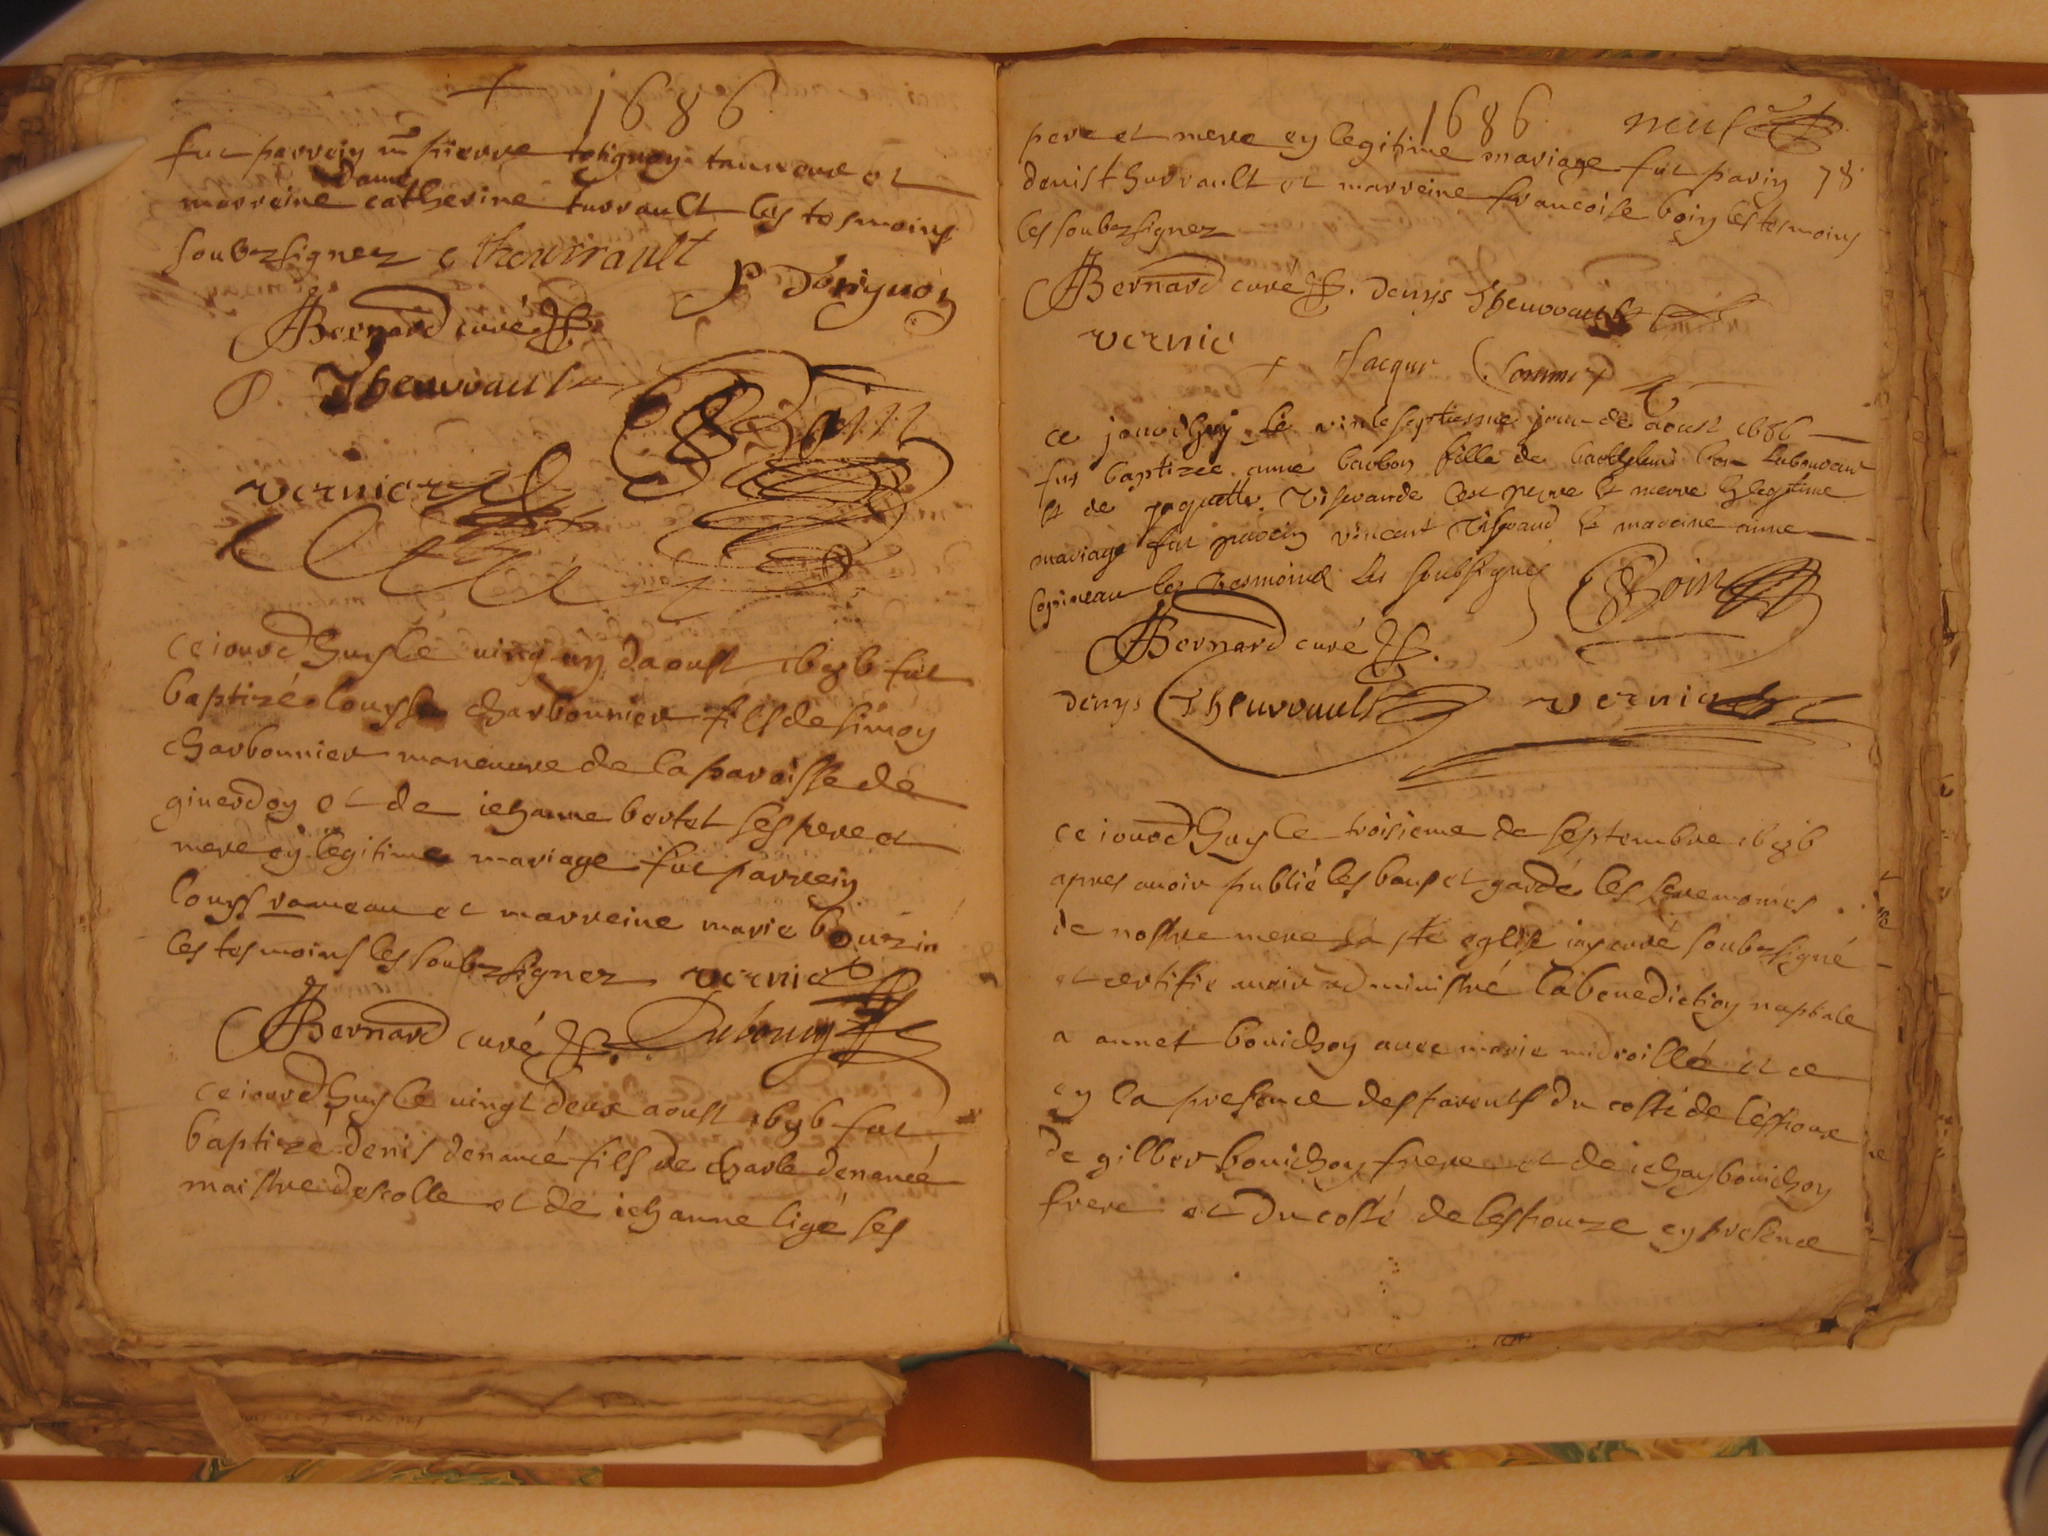 1686
fut parrein mre pierre tanneur et
dame
marreine catherine turrault les tesmoins
soubzsignez C Theurrault
P Dorignon
Bernard curé
P. Theurrault
vernier
ce iourdhuy le ving un daoust 1686 fut
baptizé Louys charbonnier fils de simon
charbonnier maneuvre de la paroisse de
ginerdoy et de iehanne bertet ses pere et
mere en legitime mariage fut parrein
Louys rameau et marreine marie bouzin
les tesmoins les soubzsignez vernier
Bernard curé Dubouy
ce iourdhuy le vingt deux aoust 1686 fut
baptizé denis denancé fils de charle denancé
maistre descolle et de iehanne ligé ses
1686 neuf
pere et mere en legitime mariage fut parin 78
denis thurrault et marreine francoise boin les tesmoins
les soubzsignez
Bernard curé denys Theurrault
vernie
Jacque
ce jourdhuy le vintseptiesme jour de aoust 1686
fut baptizee anne fille de
et de paquette pere et merre en legitime
mariage fut parein vincent et mareine anne
les tesmoins les soubsignes Boin
Bernard curé
denys Theurrault vernier
ce iourdhuy le troisieme de septembre 1686
apres avoir publié les bans et gardé les seremonies
de nostre mere la ste eglise iay curé soubzsigné
et certifie avoir administré la benediction nuptale
a annet bouichon avec marie midroillé et ce
en la presence des parents du costé de lespoux
de gilber bouichon frere et de iehan bouichon
frere et du costé de lespouze en presence